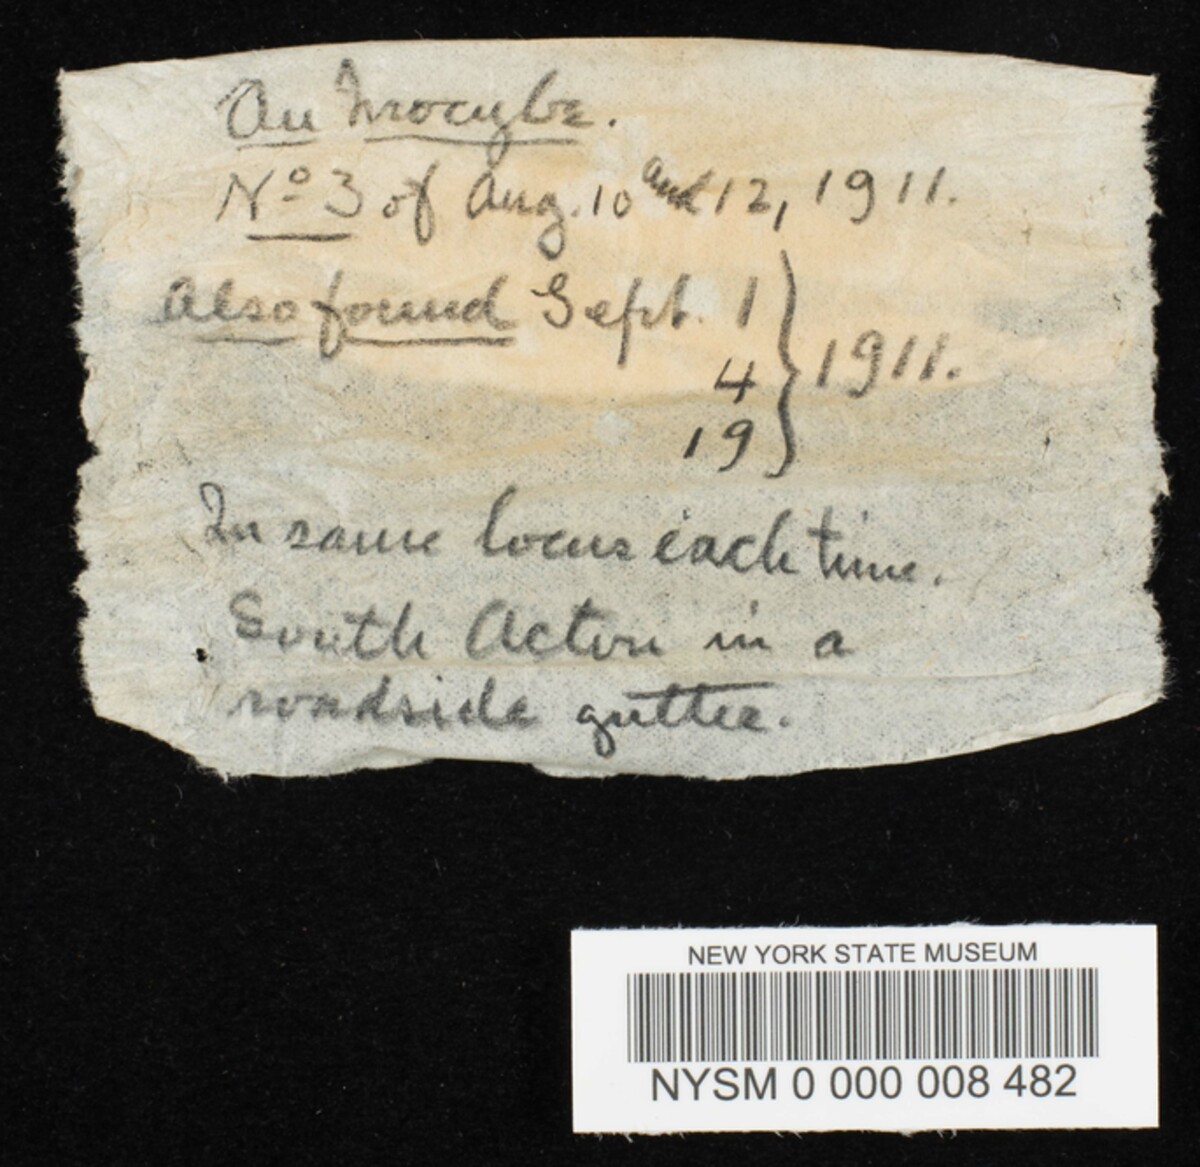 An Inocybe.
No 3 of Aug. 10 and 12, 1911.
Also found Sept. 1
4
19
} 1911.
In same locus each time.
South Acton in a
roadside gutter.
NEW YORK STATE MUSEUM
NYSM 0 000 008 482